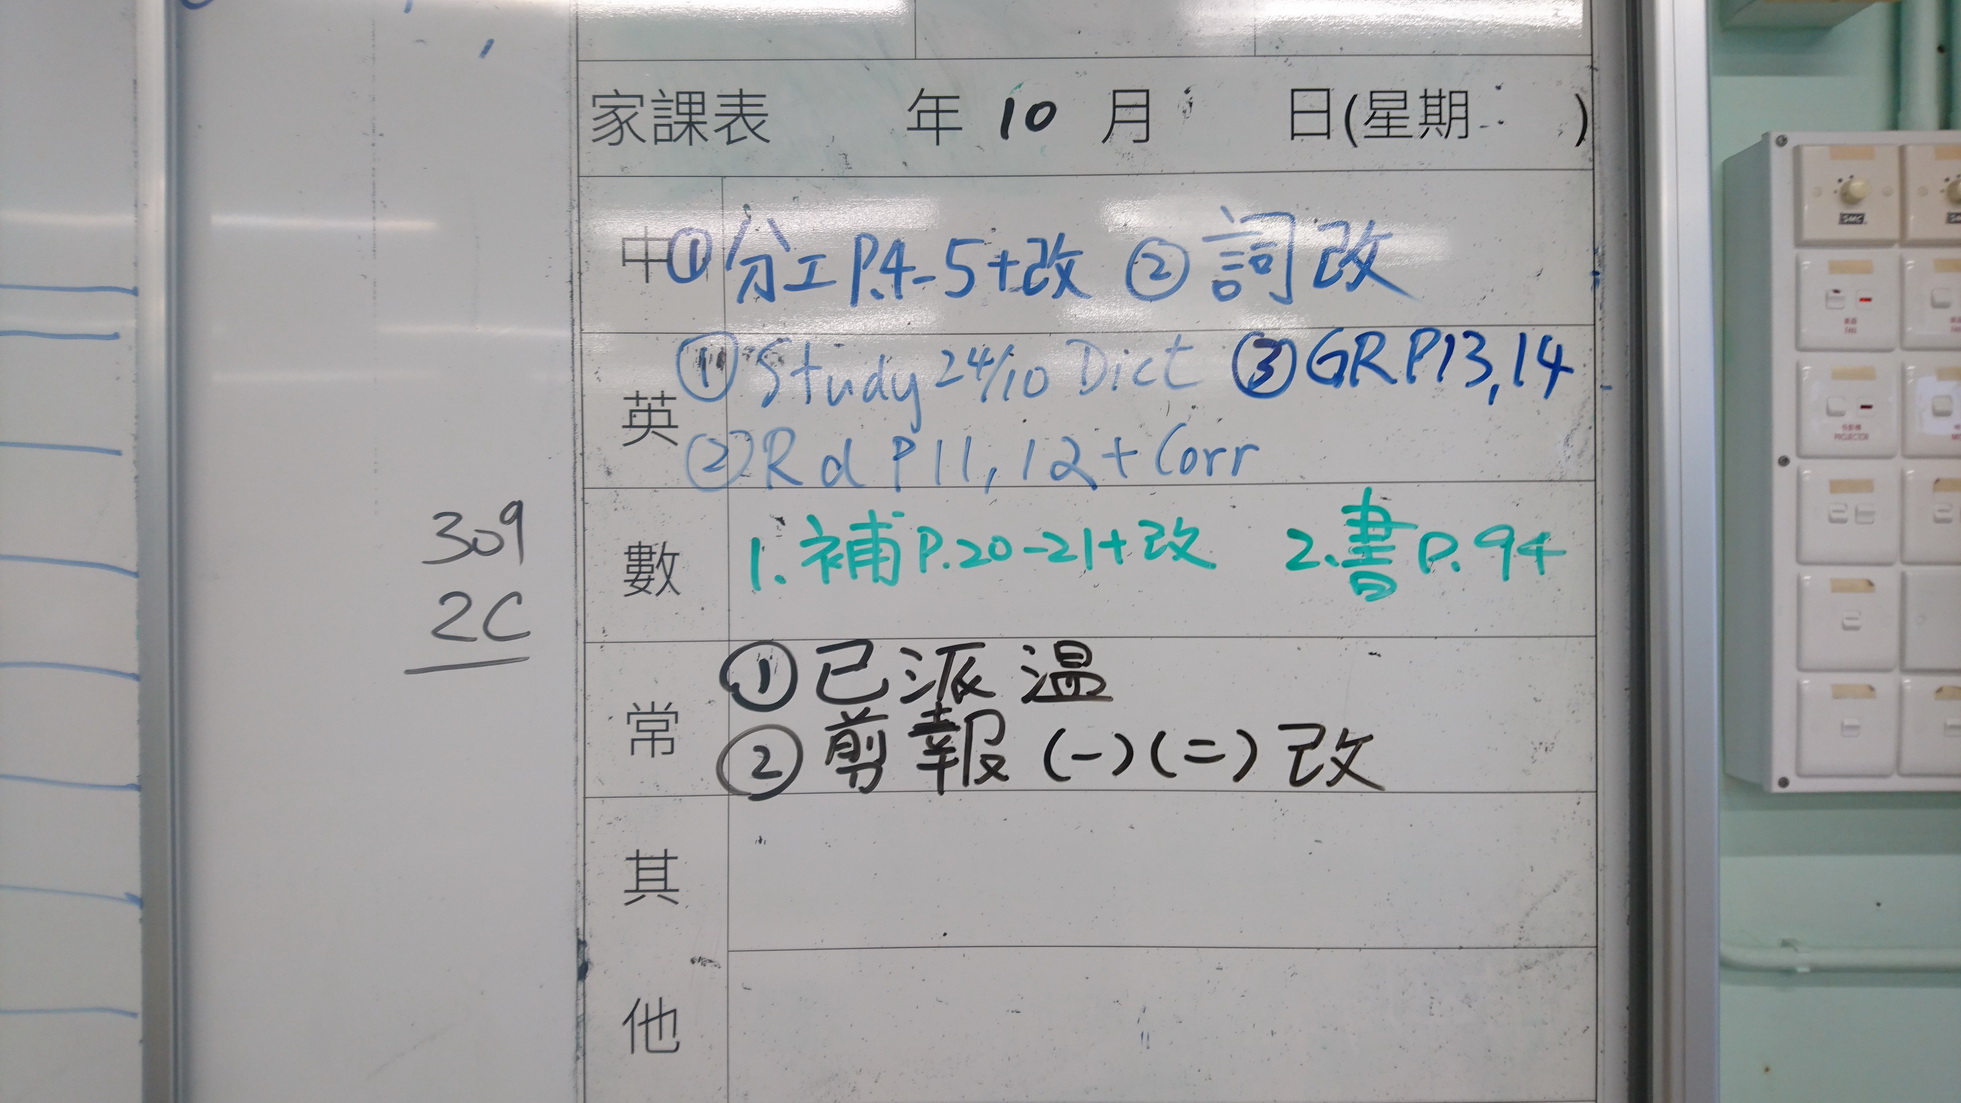 家課表 年 10 月 日(星期 )
中 ① 分工 P.4-5+改 ② 詞改
英 ① Study 24/10 Dict ③ GR P13,14
② Rd P11,12+Corr
數 1. 補 P.20-21+改 2. 書 P.94
常 ① 已派溫
② 剪報 (一)(二) 改
其
他
309
2C
SMC
FAN
PROJECTOR